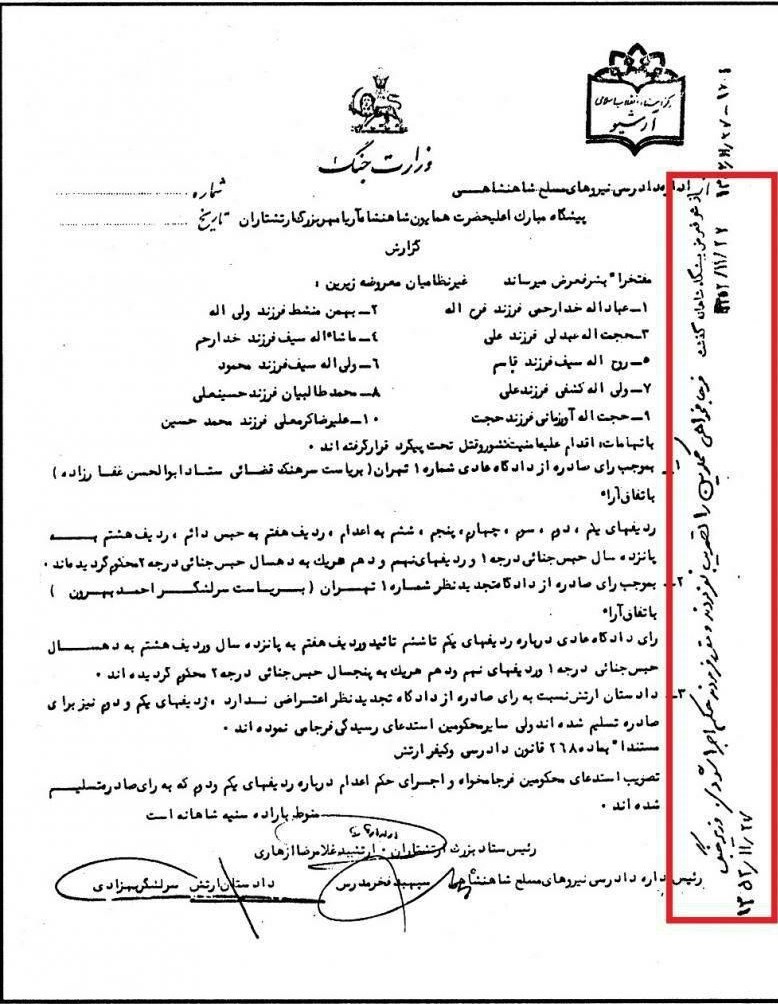 مرکز اسناد انقلاب اسلامی
آرشیو
وزارت جنگ
اداره دادرسی نیروهای مسلح شاهنشاهی
شماره
پیشگاه مبارک اعلیحضرت همایون شاهنشاه آریامهر بزرگ ارتشتاران
تاریخ
گزارش
مفتخرا" بشرفعرض میرساند غیرنظامیان معروضه زیرین :
۱ـ عباداله خدارحمی فرزند فرج اله
۲ـ بهمن منشط فرزند ولی اله
۳ـ حجت اله عبدلی فرزند علی
۴ـ ماشاءاله سیف فرزند خدارحم
۵ـ روح اله سیف فرزند قاسم
۶ـ ولی اله سیف فرزند محمود
۷ـ ولی اله کشفی فرزند علی
۸ـ محمد طالبیان فرزند حسینعلی
۹ـ حجت اله آورزمانی فرزند حجت
۱۰ـ علیرضا کرمعلی فرزند محمد حسین
باتهامات، اقدام علیه امنیت کشور و قتل تحت پیگرد قرار گرفته اند .
بموجب رای صادره از دادگاه عادی شماره ۱ تهران ( بریاست سرهنک قضائی ستاد ابوالحسن غفارزاده )
باتفاق آراء
ردیفهای یکم ، دوم ، سوم ، چهارم ، پنجم ، ششم به اعدام ، ردیف هفتم به حبس دائم ، ردیف هشتم به
پانزده سال حبس جنائی درجه ۱ و ردیفهای نهم و دهم هریک به دهسال حبس جنائی درجه ۲ محکوم گردیده اند .
۲ـ بموجب رای صادره از دادگاه تجدید نظر شماره ۱ تهران ( بریاست سرلشگر احمد بهرون )
باتفاق آراء
رای دادگاه عادی درباره ردیفهای یکم تا ششم تائید و ردیف هفتم به پانزده سال و ردیف هشتم به دهسال
حبس جنائی درجه ۱ و ردیفهای نهم و دهم هریک به پنجسال حبس جنائی درجه ۲ محکوم گردیده اند .
۳ـ دادستان ارتش نسبت به رای صادره از دادگاه تجدید نظر اعتراضی ندارد ، ردیفهای یکم و دوم نیز برای
صادره تسلیم شده اند ولی سایر محکومین استدعای رسیدگی فرجامی نموده اند .
مستندا" بماده ۲۶۸ قانون دادرسی و کیفر ارتش
تصویب استدعای محکومین فرجامخواه و اجرای حکم اعدام درباره ردیفهای یکم و دوم که به رای صادره تسلیم
شده اند .
منوط باراده سنیه شاهانه است
رئیس ستاد بزرگ ارتشتاران . ارتشبد غلامرضا ازهاری
رئیس اداره دادرسی نیروهای مسلح شاهنشاهی سپهبد فخرمدرس
دادستان ارتش سرلشگر بهزادی
از شرفعرض پیشگاه شاهانه گذشت فرجامخواهی محکومین را تصویب نفرمودند و مقرر فرمودند حکم اجرا شود . وزیر جنگ
۱۳۵۲/۱۱/۲۷
۱۳۵۲/۱۱/۲۷